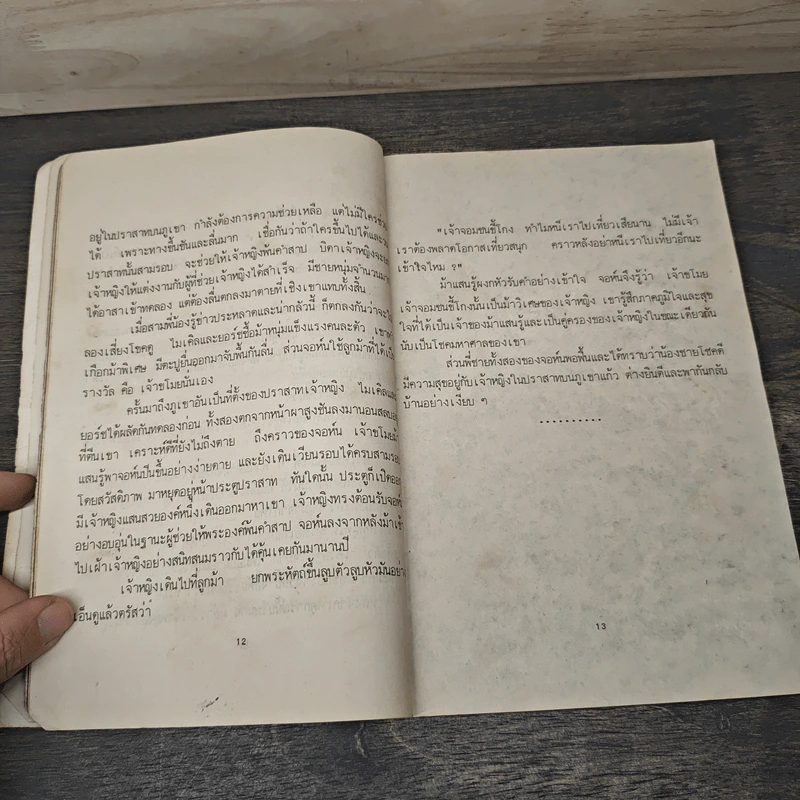 อยู่ในปราสาทบนภูเขา กำลังต้องการความช่วยเหลือ แต่ไม่มีใครช่วย
ได้ เพราะทางขึ้นชันและลื่นมาก เชื่อกันว่าถ้าใครขึ้นไปได้และวน
ปราสาทนั้นสามรอบ จะช่วยให้เจ้าหญิงพ้นคำสาป บิดาเจ้าหญิงจะยก
เจ้าหญิงให้แต่งงานกับผู้ที่ช่วยเจ้าหญิงได้สำเร็จ มีชายหนุ่มจำนวนมาก
ได้อาสาเข้าทดลอง แต่ต้องลื่นตกลงมาตายที่เชิงเขาแทบทั้งสิ้น
เมื่อสามพี่น้องรู้ข่าวประหลาดและน่ากลัวนี้ ก็ตกลงกันว่าจะ
ลองเสี่ยงโชคดู ไมเคิลและยอร์ชซื้อม้าหนุ่มแข็งแรงคนละตัว
เกือกม้าพิเศษ มีตะปูยื่นออกมาจับพื้นกันลื่น ส่วนจอห์นใช้ลูกม้าที่ได้เป็น
รางวัล คือ เจ้าขโมยนั่นเอง
ครั้นมาถึงภูเขาอันเป็นที่ตั้งของปราสาทเจ้าหญิง ไมเคิลและ
ยอร์ชได้ผลัดกันทดลองก่อน ทั้งสองตกจากหน้าผาสูงชันลงมานอนสลบอยู่
ที่ตีนเขา เคราะห์ดีที่ยังไม่ถึงตาย ถึงคราวของจอห์น เจ้าขโมยม้า
แสนรู้พาจอห์นปีนขึ้นอย่างง่ายดาย และยังเดินเวียนรอบได้ครบสามรอบ
โดยสวัสดิภาพ มาหยุดอยู่หน้าประตูปราสาท ทันใดนั้น ประตูก็เปิดออก
มีเจ้าหญิงแสนสวยองค์หนึ่งเดินออกมาหาเขา เจ้าหญิงทรงต้อนรับจอห์น
อย่างอบอุ่นในฐานะผู้ช่วยให้พระองค์พ้นคำสาป จอห์นลงจากหลังม้าเข้า
ไปเฝ้าเจ้าหญิงอย่างสนิทสนมราวกับได้คุ้นเคยกันมานานปี
เจ้าหญิงเดินไปที่ลูกม้า ยกพระหัตถ์ขึ้นลูบตัวลูบหัวมันอย่าง
เอ็นดูแล้วตรัสว่า
12
"เจ้าจอมซนขี้โกง ทำไมหนีเราไปเที่ยวเสียนาน ไม่มีเจ้า
เราต้องพลาดโอกาสเที่ยวสนุก คราวหลังอย่าหนีเราไปเที่ยวอีกนะ
เข้าใจไหม ?"
ม้าแสนรู้ผงกหัวรับคำอย่างเข้าใจ จอห์นจึงรู้ว่า เจ้าขโมย
เจ้าจอมซนขี้โกงนั้นเป็นม้าวิเศษของเจ้าหญิง เขารู้สึกภาคภูมิใจและสุข
ใจที่ได้เป็นเจ้าของม้าแสนรู้และเป็นคู่ครองของเจ้าหญิงในขณะเดียวกัน
นับเป็นโชคมหาศาลของเขา
ส่วนพี่ชายทั้งสองของจอห์นพอฟื้นและได้ทราบว่าน้องชายโชคดี
มีความสุขอยู่กับเจ้าหญิงในปราสาทบนภูเขาแล้ว ต่างยินดีและพากันกลับ
บ้านอย่างเงียบ ๆ
..........
13